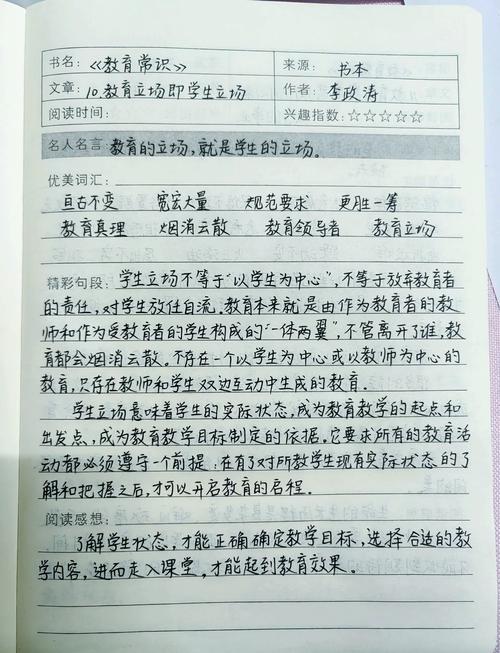 书名：《教育常识》 来源：书本
文章：10.教育立场即学生立场 作者：李政涛
阅读时间： 兴趣指数：☆☆☆☆☆
名人名言：教育的立场，就是学生的立场。
优美词汇：
亘古不变 宽宏大量 规范要求 更胜一筹
教育真理 烟消云散 教育领导者 教育立场
精彩句段：学生立场不等于“以学生为中心”，不等于放弃教育者
的责任，对学生放任自流。教育本来就是由作为教育者的教
师和作为受教育者的学生构成的“一体两翼”，不管离开了谁，教
育都会烟消云散。不存在一个以学生为中心或以教师为中心的
教育，只存在教师和学生双边互动中生成的教育。
学生立场意味着学生的实际状态，成为教育教学的起点和
出发点，成为教育教学目标制定的依据。它要求所有的教育活
动都必须遵守一个前提：在有了对所教学生现有实际状态的了
解和把握之后，才可以开启教育的启程。
阅读感想：
了解学生状态，才能正确确定教学目标，选择合适的教
学内容，进而走入课堂，才能起到教育效果。